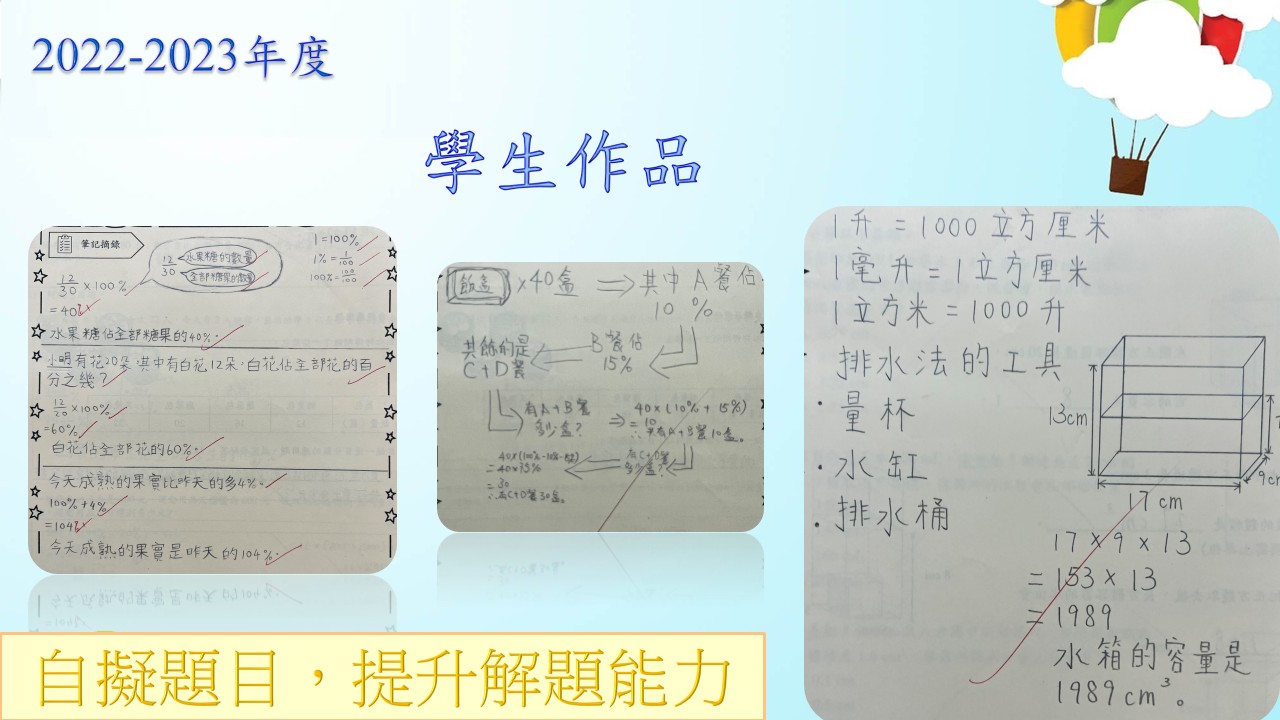 2022-2023年度
學生作品
筆記摘錄
12/30 × 100%
= 40%
12 水果糖的數量
30 全部糖果的數量
1 = 100%
1% = 1/100
100% = 100/100
水果糖佔全部糖果的40%。
小明有花20朵,其中有白花12朵,白花佔全部花的百
分之幾?
12/20 × 100%
= 60%
白花佔全部花的60%。
今天成熟的果實比昨天的多4%。
100% + 4%
= 104%
今天成熟的果實是昨天的104%。
飯盒 × 40盒 ⇒ 其中A餐佔
10%
B餐佔
15%
其餘的是
C+D餐
有A+B餐
多少盒?
⇒ 40×(10% + 15%)
= 10
∴ 共有A+B餐10盒。
有C+D餐
多少盒?
= 40×75%
= 30
∴ 有C+D餐30盒。
1升 = 1000立方厘米
1毫升 = 1立方厘米
1立方米 = 1000升
排水法的工具
· 量杯
· 水缸
· 排水桶
13cm
9cm
17cm
17 × 9 × 13
= 153 × 13
= 1989
水箱的容量是
1989 cm³。
自擬題目,提升解題能力